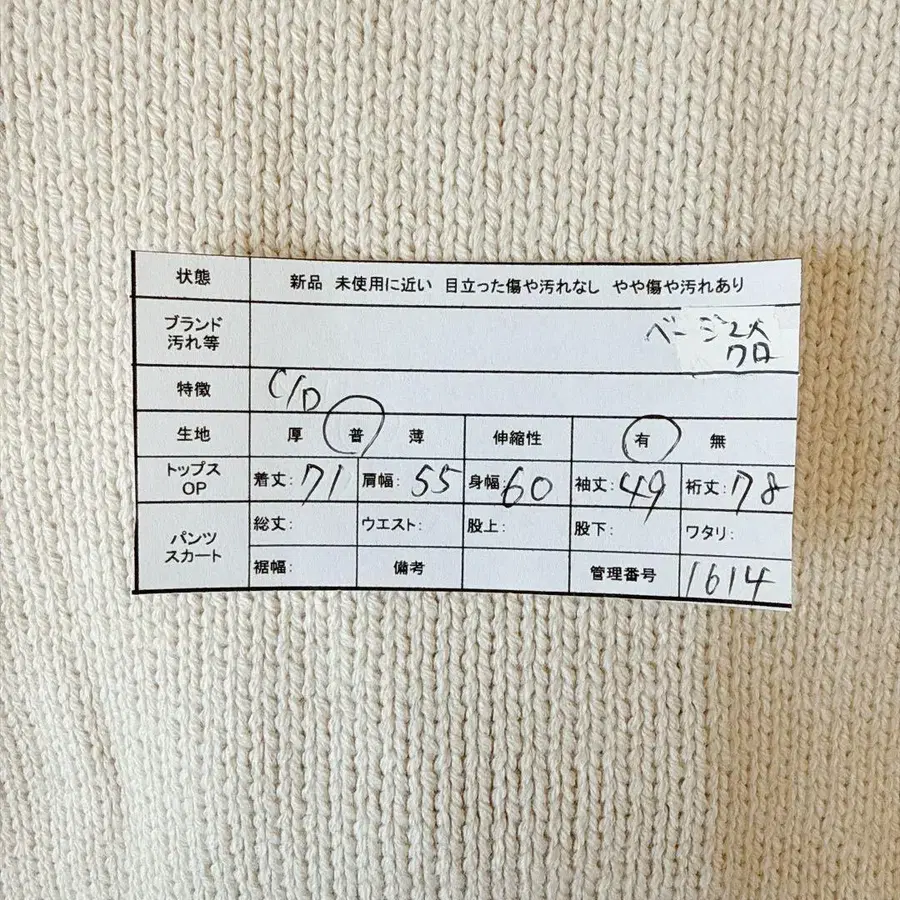 状態 新品 未使用に近い 目立った傷や汚れなし やや傷や汚れあり
ブランド 汚れ等 ベージュ
クロ
特徴 C/D
生地 厚 普 薄 伸縮性 有 無
トップス OP 着丈:71 肩幅:55 身幅:60 袖丈:49 裄丈:78
パンツ スカート 総丈: ウエスト: 股上: 股下: ワタリ:
裾幅: 備考 管理番号 1614